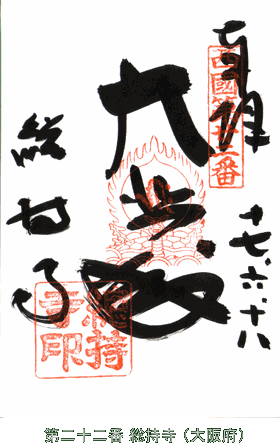 奉拝
十七・六・十八
西國第廿二番
大悲殿
総持寺
総持寺印
第二十二番 総持寺（大阪府）